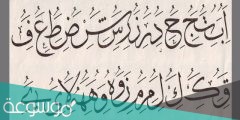 ا ب ت ج ح د ر ز س ش ض ط ع ف
ق ك ل م و ه لا ي
موسوعة